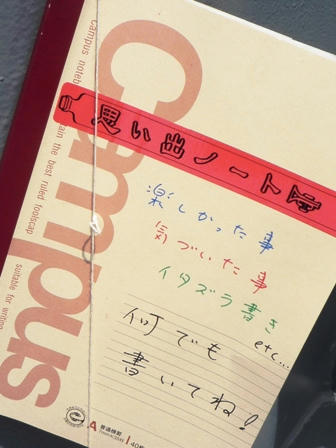 Campus
Campus noteb
ain the best ruled foolscap
suitable for writing
思い出ノート
楽しかった事
気づいた事
イタズラ書き
etc...
何でも
書いてね!
A 普通横罫